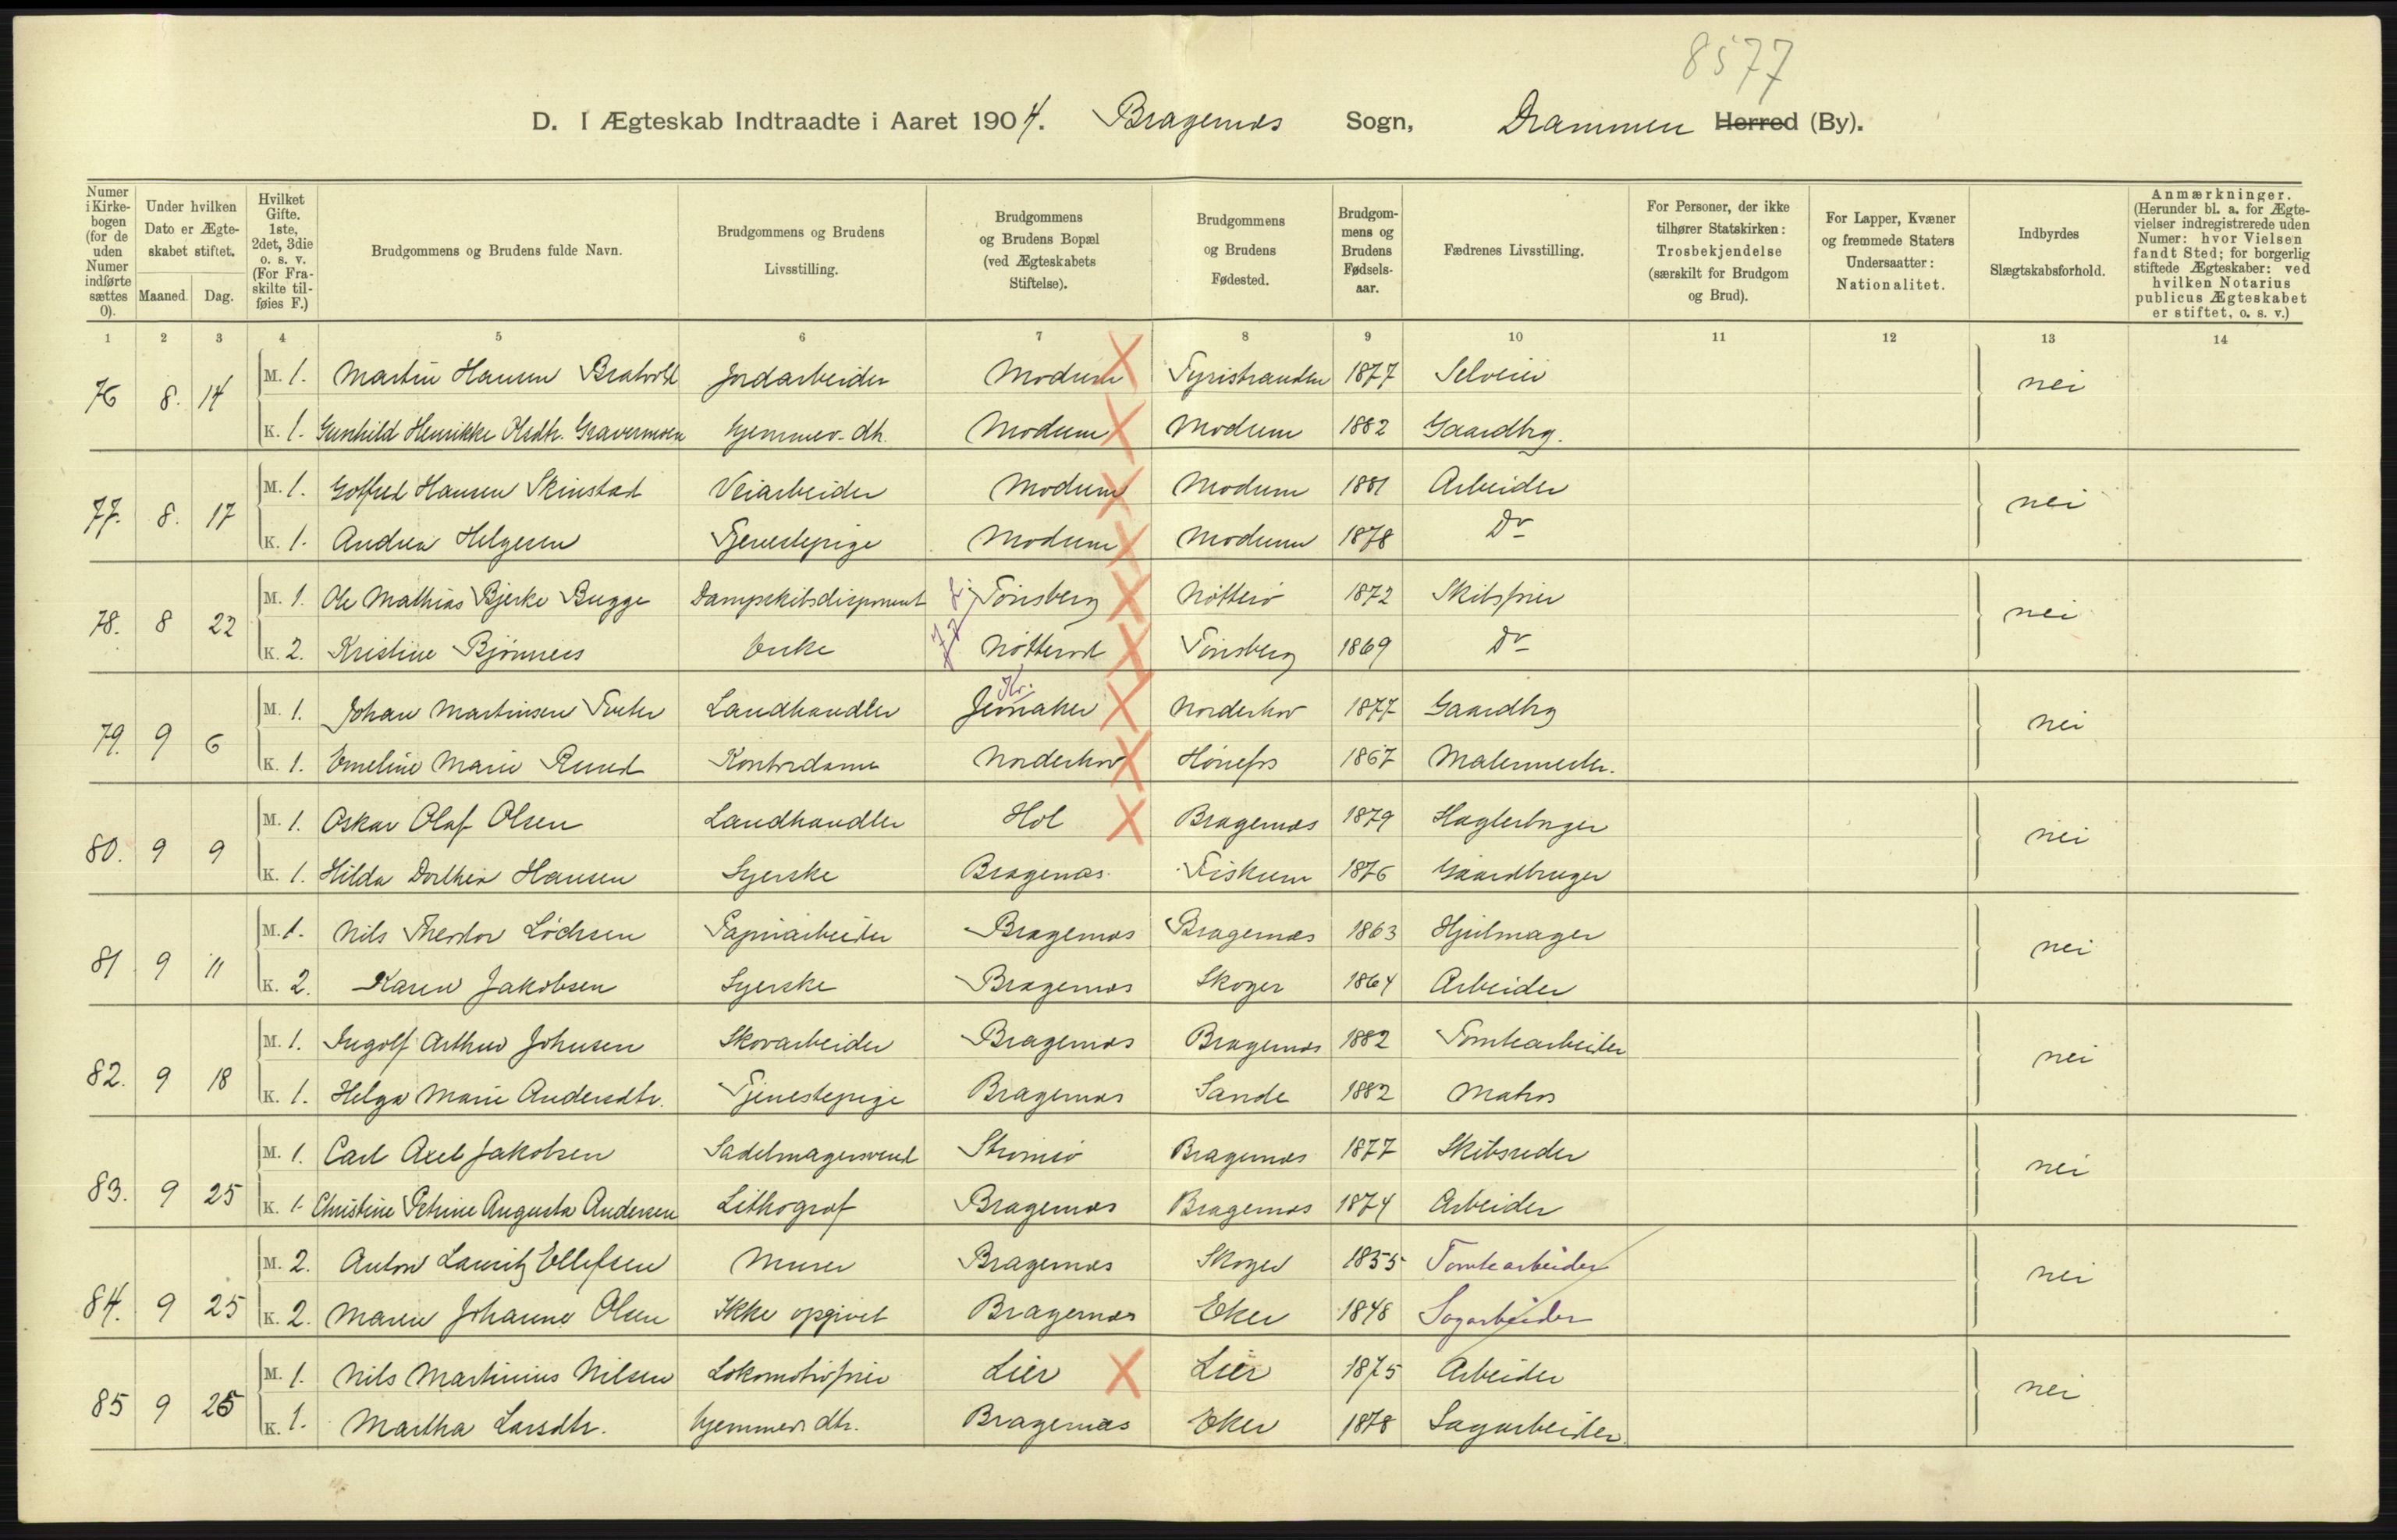 8577
D. I Ægteskab Indtraadte i Aaret 1904. Bragernæs Sogn, Drammen Herred (By).
Numer i Kirkebogen (for de uden Numer indførte sættes 0).
Under hvilken Dato er Ægteskabet stiftet. Maaned. Dag.
Hvilket Gifte. 1ste, 2det, 3die o. s. v. (For Fraskilte tilføies F.)
Brudgommens og Brudens fulde Navn.
Brudgommens og Brudens Livsstilling.
Brudgommens og Brudens Bopæl (ved Ægteskabets Stiftelse).
Brudgommens og Brudens Fødested.
Brudgommens og Brudens Fødselsaar.
Fædrenes Livsstilling.
For Personer, der ikke tilhører Statskirken: Trosbekjendelse (særskilt for Brudgom og Brud).
For Lapper, Kvæner og fremmede Staters Undersaatter: Nationalitet.
Indbyrdes Slægtskabsforhold.
Anmærkninger. (Herunder bl. a. for Ægtevielser indregistrerede uden Numer: hvor Vielsen fandt Sted; for borgerlig stiftede Ægteskaber: ved hvilken Notarius publicus Ægteskabet er stiftet, o. s. v.)
1 2 3 4 5 6 7 8 9 10 11 12 13 14
76 8. 14 M. 1. Martin Hansen Bratvold Jordarbeider Modum Tyristranden 1877 Selveier nei
K. 1. Gunhild Henrikke Olsdtr. Gravermoen hjemmev. dtr. Modum Modum 1882 Gaardbrg.
77. 8. 17 M. 1. Gotfred Hansen Skinstad Veiarbeider Modum Modum 1881 Arbeider nei
K. 1. Andrea Helgesen Tjenestepige Modum Modum 1878 Do
78. 8 22 M. 1. Ole Mathias Bjerke Bugge Dampskibsdisponent Tønsberg Nøtterø 1872 Skibsfører nei
K. 2. Kristine Bjønnes Enke Nøtterø Tønsberg 1869 Do
79. 9 6 M. 1. Johan Martinsen Tveter Landhandler Jevnaker Norderhov 1877 Gaardbrg nei
K. 1. Emeline Marie Ruud Kontordame Norderhov Hønefos 1867 Malermester.
80. 9 9 M. 1. Oskar Olaf Olsen Landhandler Hol Bragernæs 1879 Haglstøper nei
K. 1. Hilda Dorthea Hansen Syerske Bragernæs Fiskum 1876 Gaardbruger
81 9 11 M. 1. Nils Theodor Lochsen Papirarbeider Bragernæs Bragernæs 1863 Hjulmager nei
K. 2. Karen Jakobsen Syerske Bragernæs Skoger 1864 Arbeider
82. 9 18 M. 1. Ingolf Arthur Johnsen Skovarbeider Bragernæs Bragernæs 1882 Tomtearbeider nei
K. 1. Helga Marie Andersdtr. Tjenestepige Bragernæs Sande 1882 Matros
83. 9 25 M. 1. Carl Axel Jakobsen Sadelmagersvend Strømsø Bragernæs 1877 Skibsreder nei
K. 1. Christine Petrine Augusta Andersen Lithograf Bragernæs Bragernæs 1874 Arbeider
84. 9 25 M. 2. Anton Lauritz Ellefsen Murer Bragernæs Skoger 1855 Tomtearbeider nei
K. 2. Maren Johanne Olsen Ikke opgivet Bragernæs Eker 1848 Sagarbeider
85 9 25 M. 1. Nils Martinius Nilsen Lokomotivfører Lier Lier 1875 Arbeider nei
K. 1. Martha Larsdtr. hjemmev. dtr. Bragernæs Eker 1878 Sagarbeider.